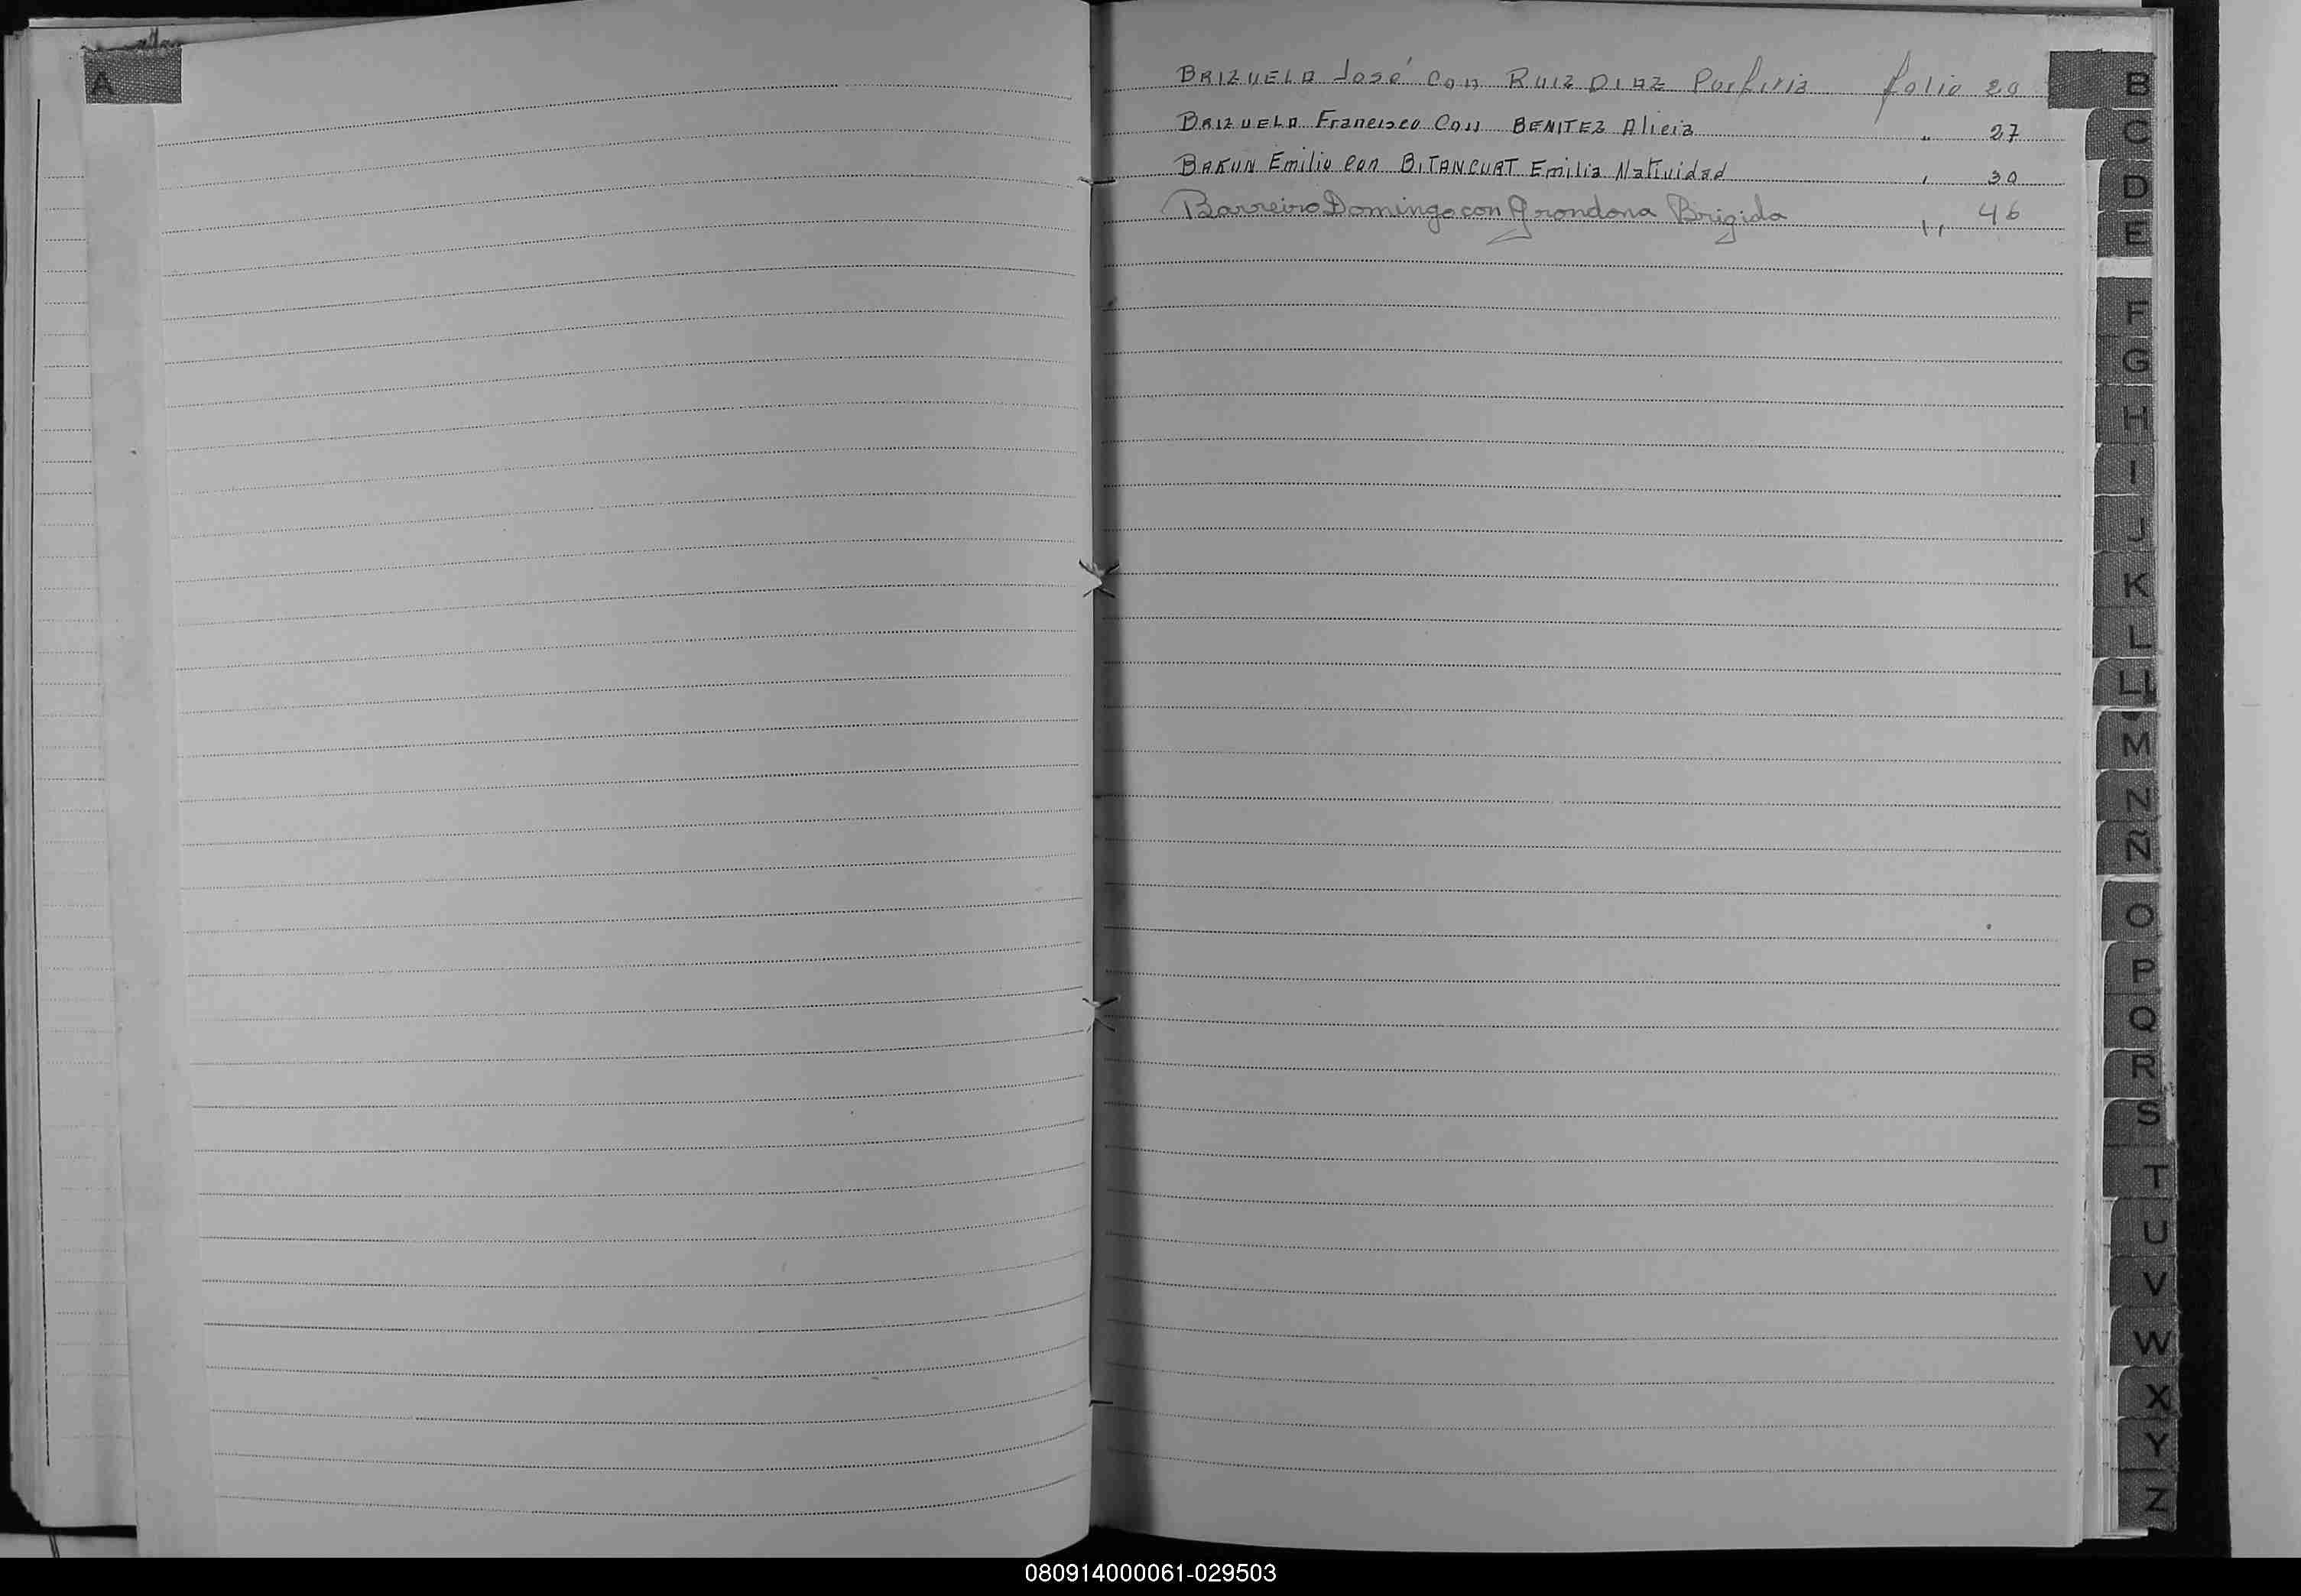 A
BRIZUELA José con RUIZ DIAZ Porfiria folio 20
BRIZUELA Francisco Con BENITEZ Alicia " 27
BAKUN Emilio con BITANCURT Emilia Natividad , 30
Barreiro Domingo con Grondona Brigida ,, 46
B
C
D
E
F
G
H
I
J
K
L
LL
M
N
Ñ
O
P
Q
R
S
T
U
V
W
X
Y
Z
080914000061-029503